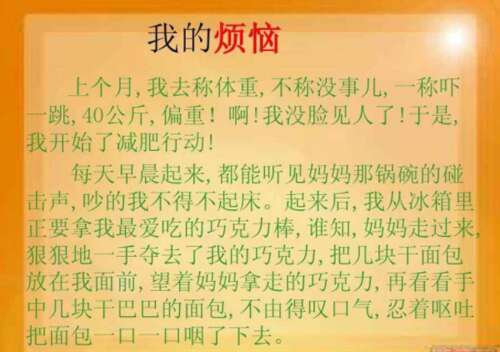 我的烦恼
上个月,我去称体重,不称没事儿,一称吓
一跳,40公斤,偏重！啊!我没脸见人了!于是,
我开始了减肥行动!
每天早晨起来,都能听见妈妈那锅碗的碰
击声,吵的我不得不起床。起来后,我从冰箱里
正要拿我最爱吃的巧克力棒,谁知,妈妈走过来,
狠狠地一手夺去了我的巧克力,把几块干面包
放在我面前,望着妈妈拿走的巧克力,再看看手
中几块干巴巴的面包,不由得叹口气,忍着呕吐
把面包一口一口咽了下去。